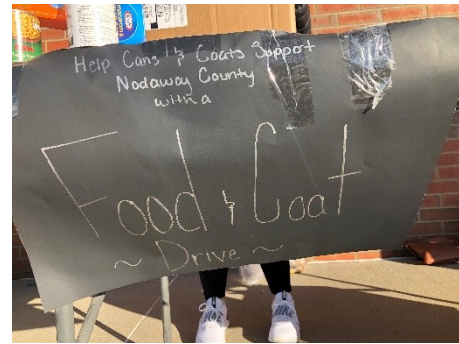 Help Cans & Coats Support
Nodaway County
with a
Food & Coat
~ Drive ~